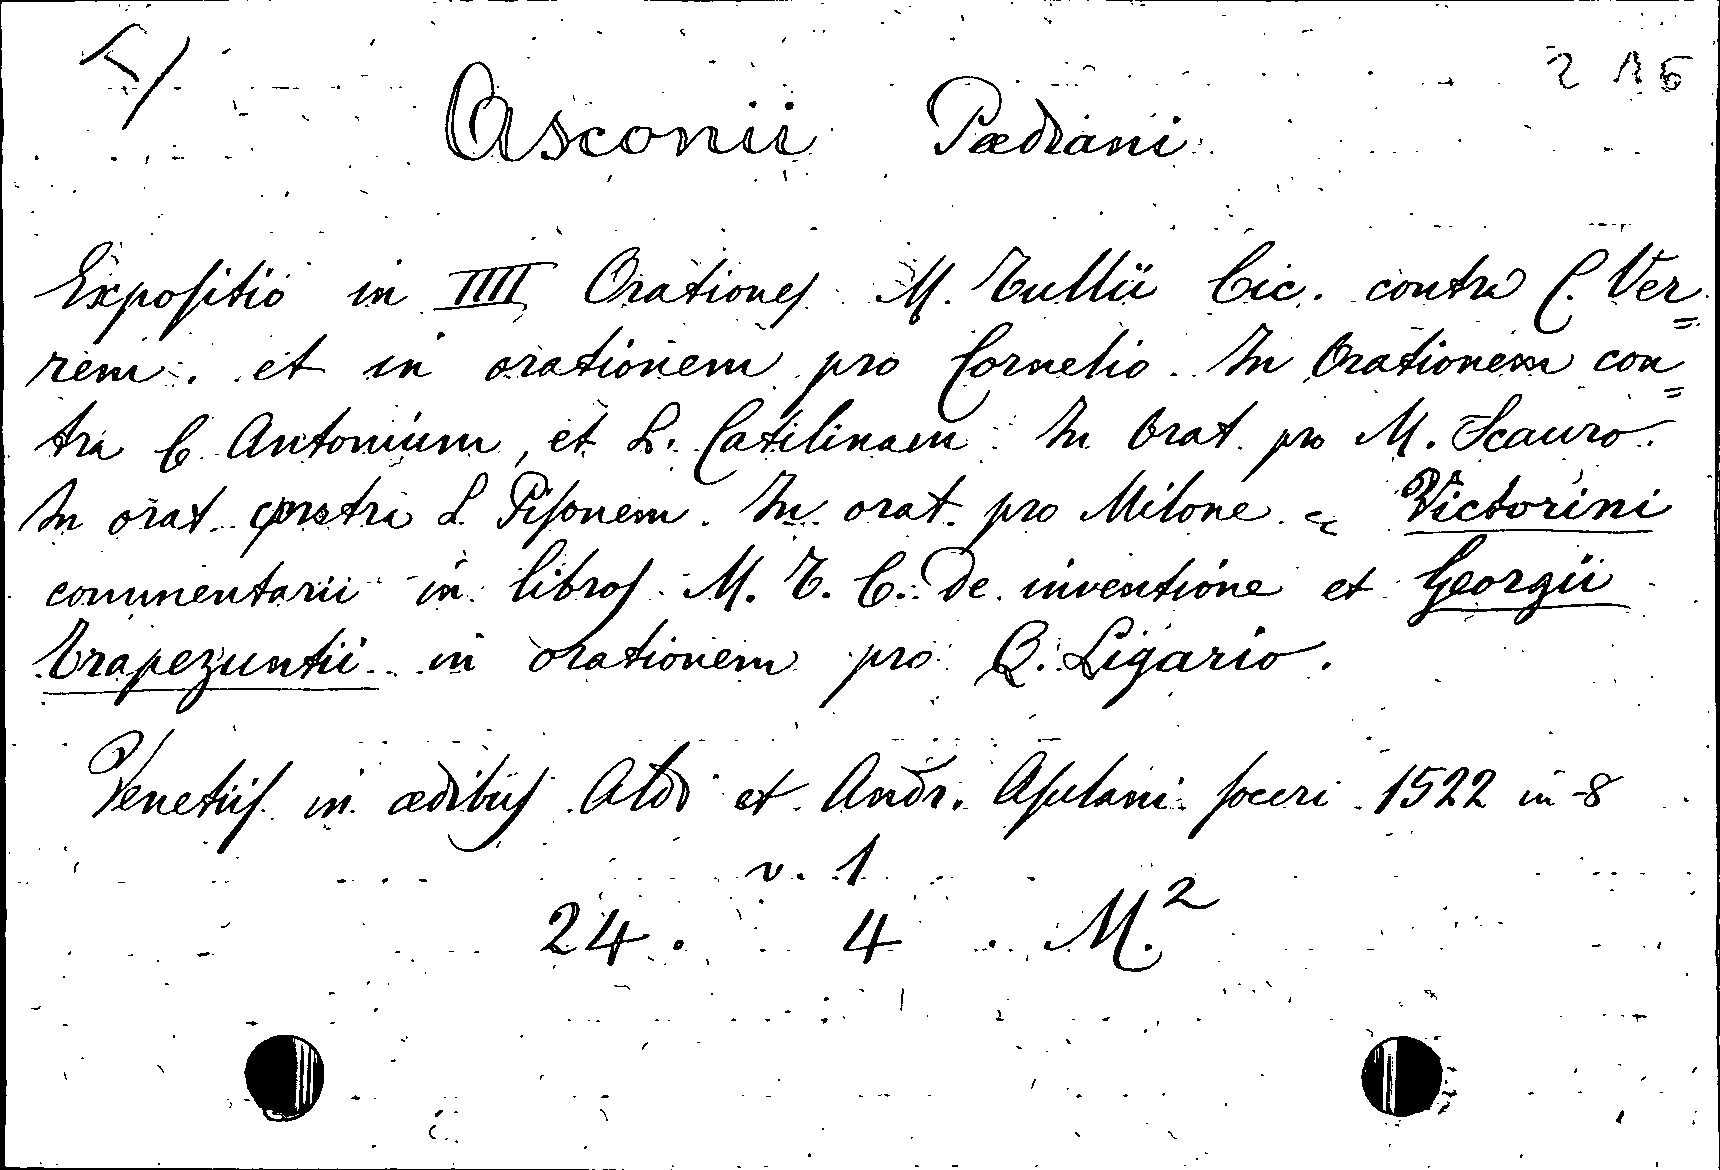 216
Asconii Pædiani
Expositio in IIII Orationes M. Tullii Cic. contra C. Ver=
rem. et in orationem pro Cornelio. In Orationem con=
tra C. Antonium, et L. Catilinam. In Orat. pro M. Scauro.
In orat. contra L. Pisonem. In orat. pro Milone. = Victorini
commentarii in libros M. T. C. De inventione et Georgii
Trapezuntii in orationem pro Q. Ligario.
Venetiis in ædibus Aldi et Andr. Asulani soceri 1522 in-8
v. 1
24. 4. M.2